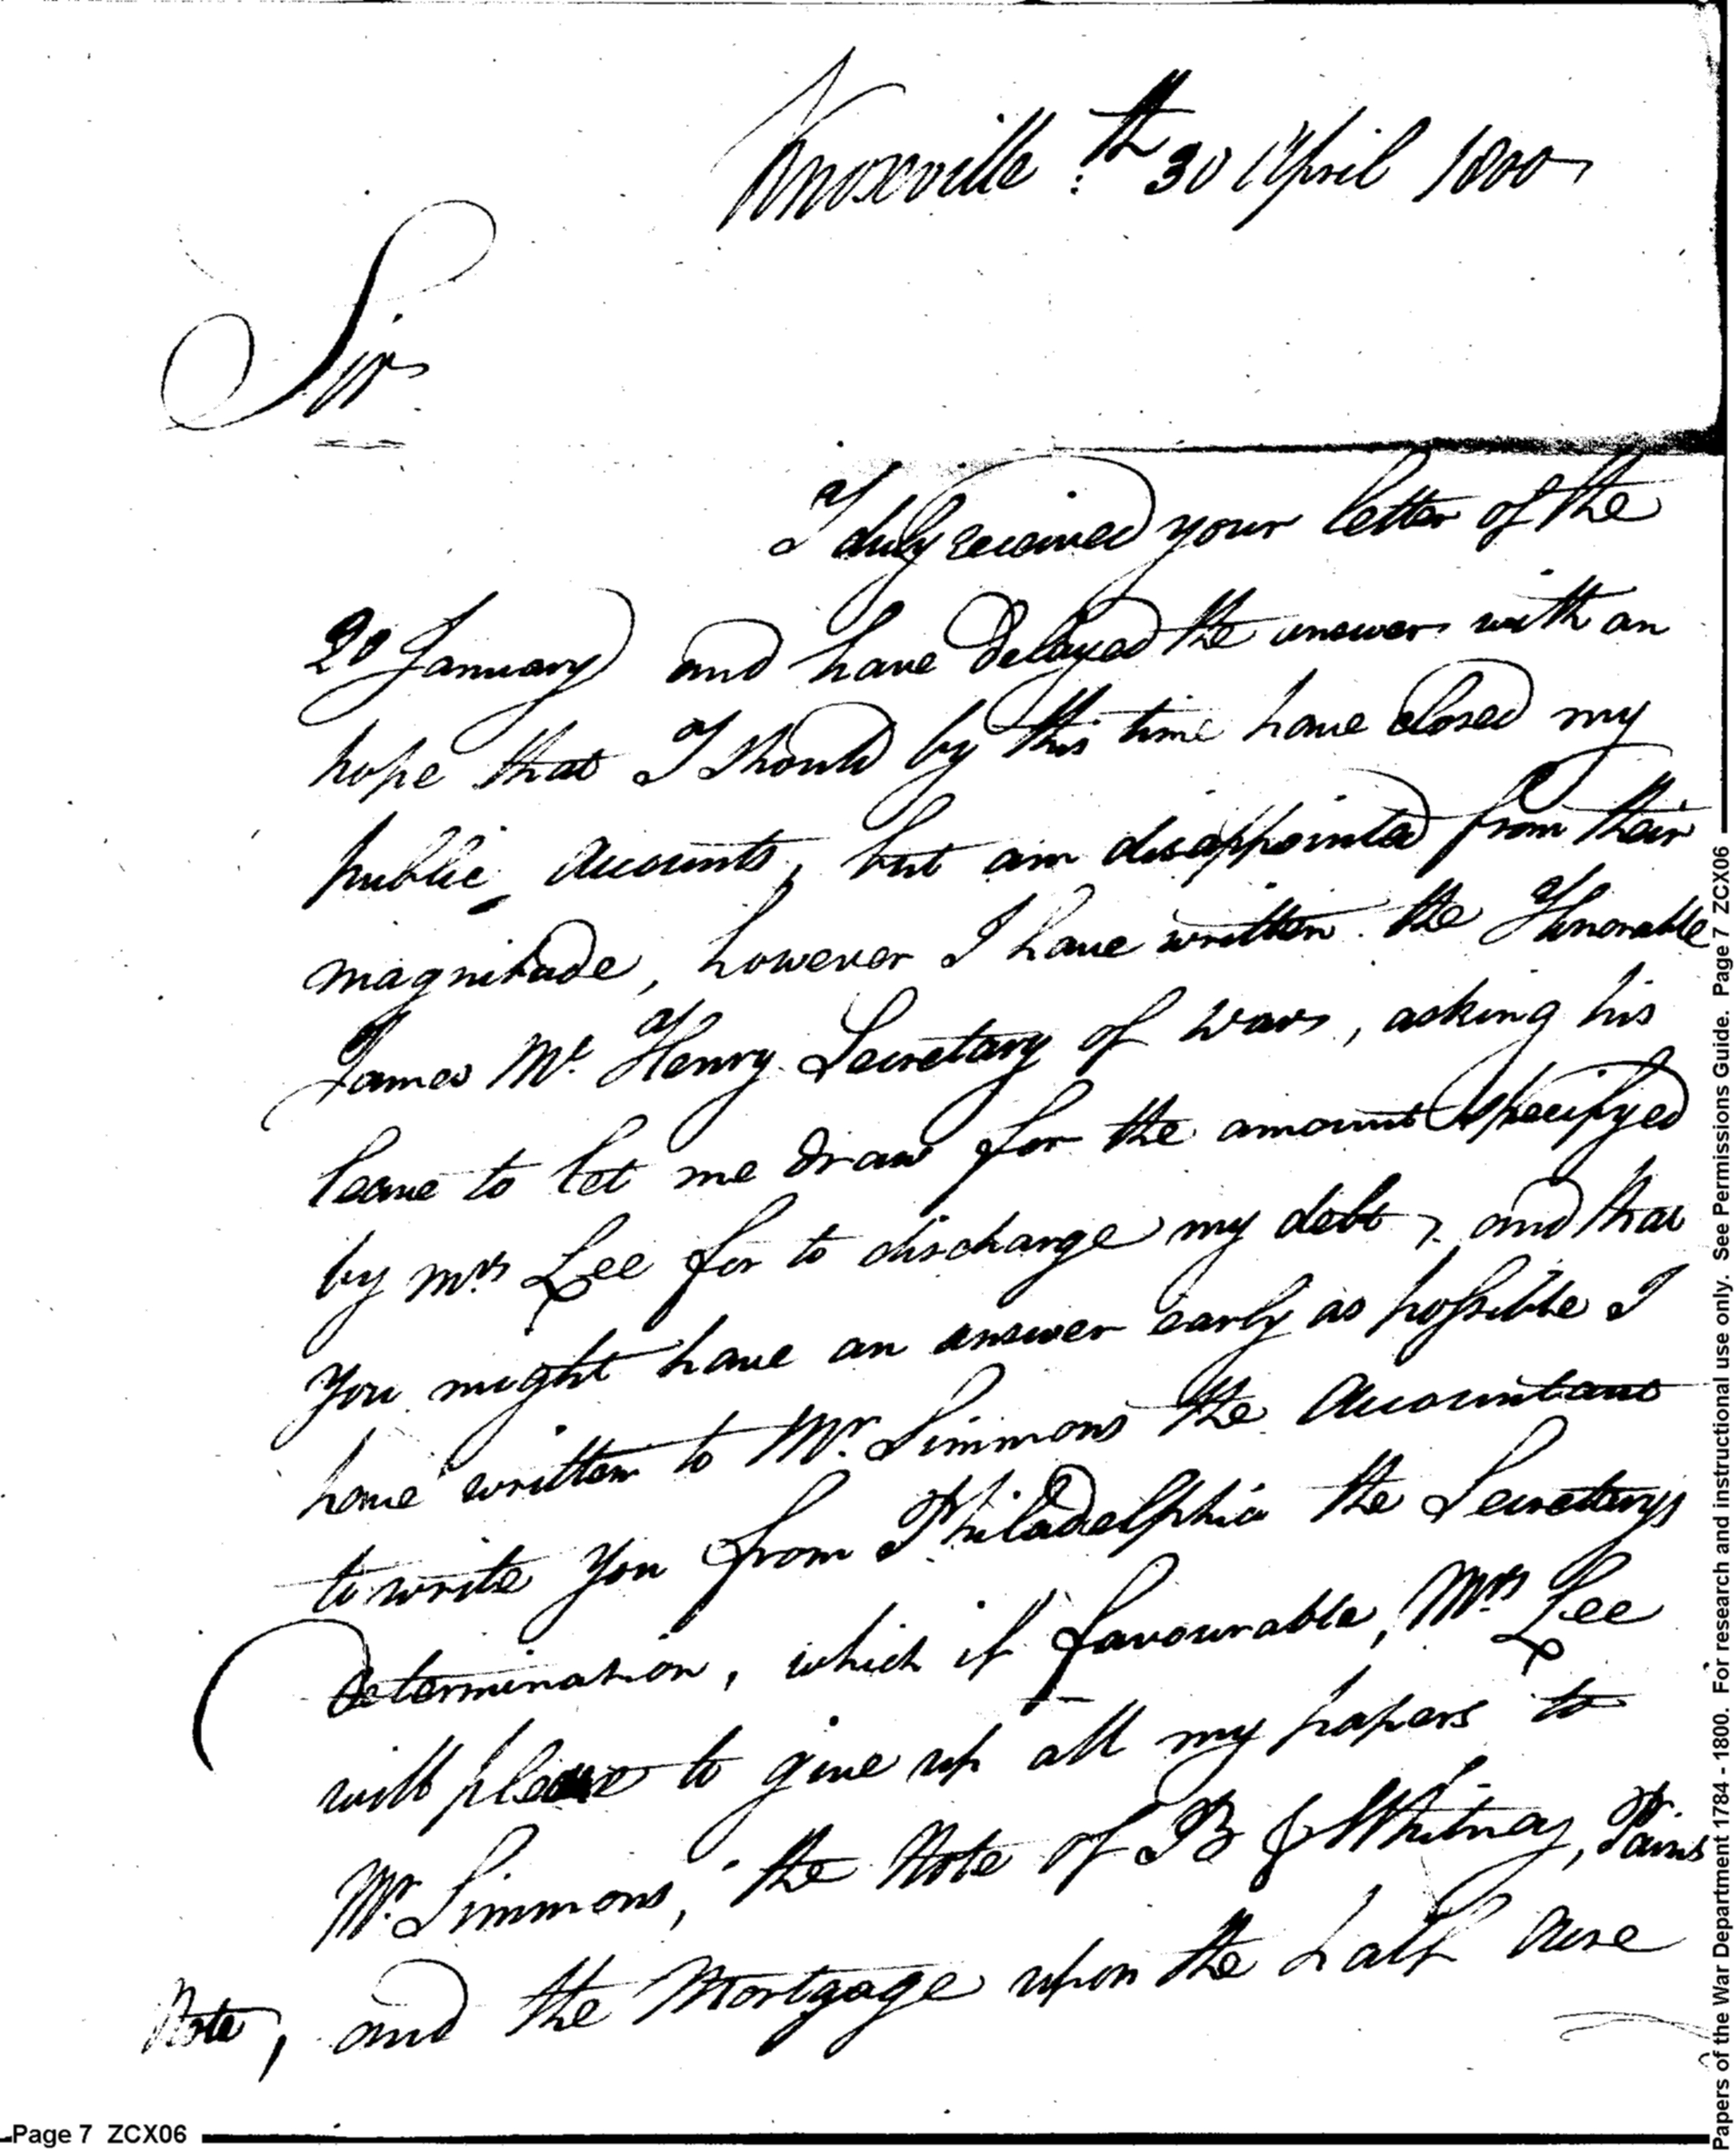 Knoxville th 30 April 1800
Sir
I duly received your letter of the
20 January and have delayed the answer with an
hope that I should by this time have closed my
public accounts, but am disappointed from their
magnitude, however I have written the Honorable
James Mc. Henry Secretary of War, asking his
leave to let me draw for the amount specifyed
by Mrs Lee for to discharge my debt, and that
you might have an answer early as possible I
have written to Mr. Simmons the Accountant
to write you from Philadelphia the Secretarys
determination, which if favourable, Mrs Lee
will please to give up all my papers to
Mr. Simmons, the Note of B & Whitney,
Note, and the Mortgage upon the half Acre
Page 7 ZCX06
Papers of the War Department 1784 - 1800. For research and instructional use only. See Permissions Guide. Page 7 ZCX06